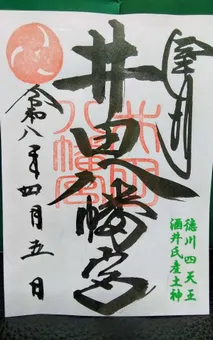 井田八幡宮
井田
八幡宮
令和八年四月五日
徳川四天王
酒井氏産土神